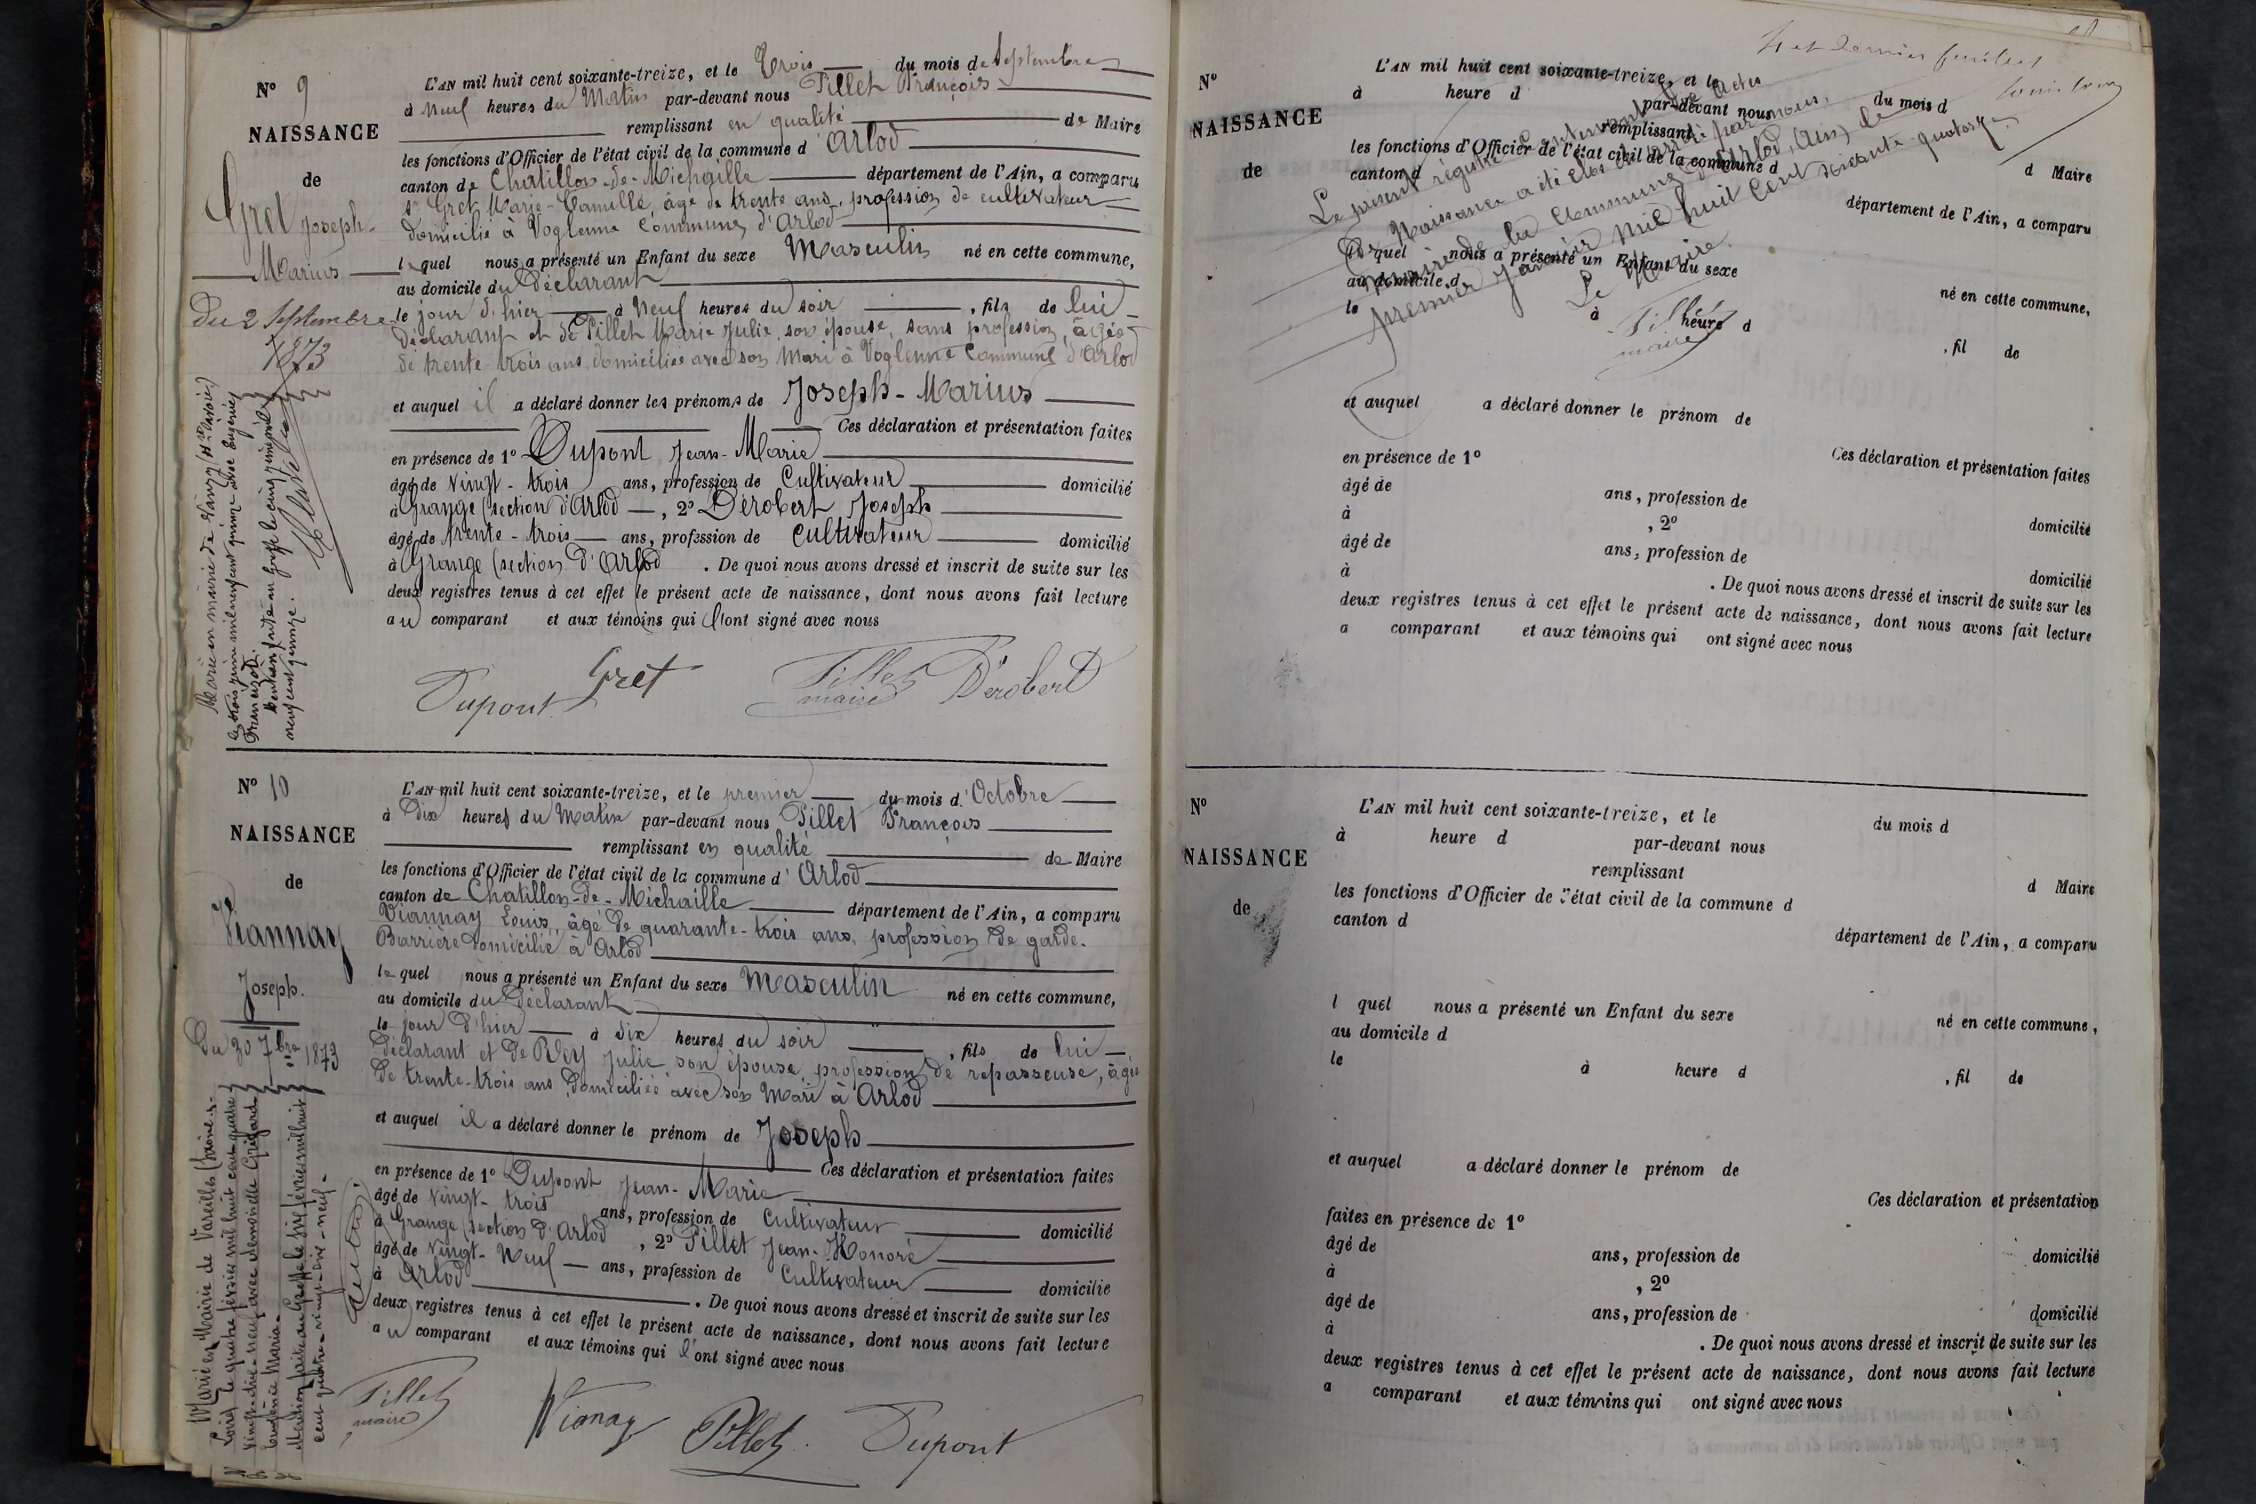 N° 9
NAISSANCE
de
Gret Joseph-
Marius
Du 2 Septembre
1873
L'AN mil huit cent soixante-treize, et le trois du mois de Septembre
à Neuf heures du Matin par-devant nous Pillet François
remplissant en qualité de Maire
les fonctions d'Officier de l'état civil de la commune d'Arlod
canton de Chatillon-de-Michaille département de l'Ain, a comparu
sr Gret Marie-Camille, âgé de trente ans, profession de cultivateur
domicilié à Voglenne Commune d'Arlod
lequel nous a présenté un Enfant du sexe Masculin né en cette commune,
au domicile du Déclarant
le jour d'hier à Neuf heures du soir, fils de lui
Déclarant et de Pillet Marie Julie, son épouse, sans profession, âgée
de trente-trois ans, domiciliée avec son Mari à Voglenne Commune d'Arlod
et auquel il a déclaré donner les prénoms de Joseph-Marius
Ces déclaration et présentation faites
en présence de 1° Dupont Jean-Marie
âgé de vingt-trois ans, profession de Cultivateur domicilié
à Grange (section d'Arlod, 2° Dérobert Joseph
âgé de trente-trois ans, profession de cultivateur domicilié
à Grange (section d'Arlod. De quoi nous avons dressé et inscrit de suite sur les
deux registres tenus à cet effet le présent acte de naissance, dont nous avons fait lecture
au comparant et aux témoins qui l'ont signé avec nous
Dupont Gret Pillet maire Dérobert
Marié en mairie de
le trois juin mil neuf cent quinze avec Eugénie
Mention faite au greffe le cinq juin mil
neuf cent quinze.
N° 10
NAISSANCE
de
Viannay
Joseph.
Du 30 7bre 1873
L'AN mil huit cent soixante-treize, et le premier du mois d'Octobre
à Dix heures du Matin par-devant nous Pillet François
remplissant en qualité de Maire
les fonctions d'Officier de l'état civil de la commune d'Arlod
canton de Chatillon-de-Michaille département de l'Ain, a comparu
Viannay Louis, âgé de quarante-trois ans, profession de garde-
Barrière domicilié à Arlod
lequel nous a présenté un Enfant du sexe Masculin né en cette commune,
au domicile du Déclarant
le jour d'hier à Six heures du soir, fils de lui
Déclarant et de Rey Julie son épouse, profession de repasseuse, âgée
de trente-trois ans, domiciliée avec son Mari à Arlod
et auquel il a déclaré donner le prénom de Joseph
Ces déclaration et présentation faites
en présence de 1° Dupont Jean-Marie
âgé de vingt-trois ans, profession de Cultivateur domicilié
à Grange (section d'Arlod, 2° Pillet Jean-Honoré
âgé de vingt-Neuf ans, profession de Cultivateur domicilié
à Arlod. De quoi nous avons dressé et inscrit de suite sur les
deux registres tenus à cet effet le présent acte de naissance, dont nous avons fait lecture
au comparant et aux témoins qui l'ont signé avec nous
Pillet maire Vianay Pillet Dupont
Marié en Mairie de Vareilles (Saône-&-
Loire) le quatre février mil huit cent quatre
vingt-dix-neuf avec demoiselle
Mention faite au Greffe le six février mil huit
cent quatre-vingt-dix-neuf-
et dernier feuillet
N°
NAISSANCE
de
L'AN mil huit cent soixante-treize, et le du mois d
à heure d par-devant nous
remplissant d Maire
les fonctions d'Officier de l'état civil de la commune d
canton d département de l'Ain, a comparu
Le présent registre contenant dix actes
de Naissance a été clos et arrêté par nous,
maire de la Commune d'Arlod, (Ain) le
premier Janvier mil huit cent soixante-quatorze.
Le Maire.
Pillet
maire
l quel nous a présenté un Enfant du sexe né en cette commune,
au domicile d
le à heure d, fil de
et auquel a déclaré donner le prénom de
Ces déclaration et présentation faites
en présence de 1°
âgé de ans, profession de domicilié
à, 2°
âgé de ans, profession de domicilié
à. De quoi nous avons dressé et inscrit de suite sur les
deux registres tenus à cet effet le présent acte de naissance, dont nous avons fait lecture
a comparant et aux témoins qui ont signé avec nous
N°
NAISSANCE
de
L'AN mil huit cent soixante-treize, et le du mois d
à heure d par-devant nous
remplissant d Maire
les fonctions d'Officier de l'état civil de la commune d
canton d département de l'Ain, a comparu
l quel nous a présenté un Enfant du sexe né en cette commune,
au domicile d
le à heure d, fil de
et auquel a déclaré donner le prénom de
Ces déclaration et présentation
faites en présence de 1°
âgé de ans, profession de domicilié
à, 2°
âgé de ans, profession de domicilié
à. De quoi nous avons dressé et inscrit de suite sur les
deux registres tenus à cet effet le présent acte de naissance, dont nous avons fait lecture
a comparant et aux témoins qui ont signé avec nous